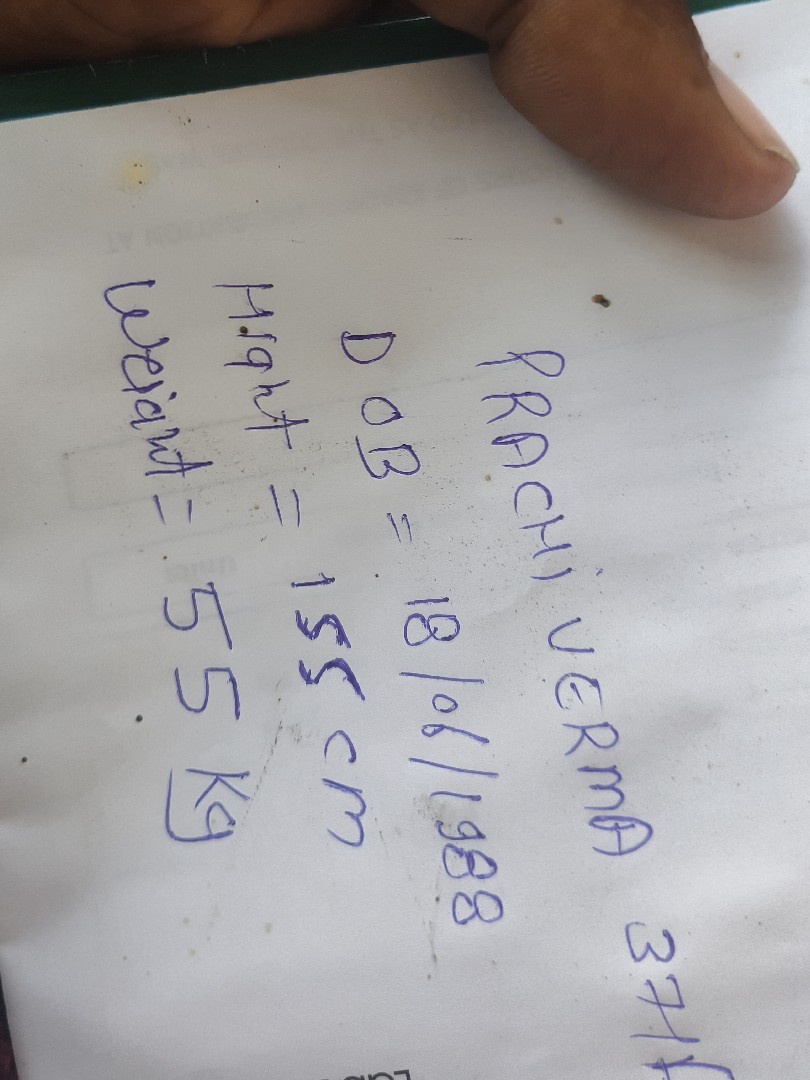 PRACHi VERMA 37/F
DOB = 18/06/1988
Hight = 155 cm
Weight = 55 Kg